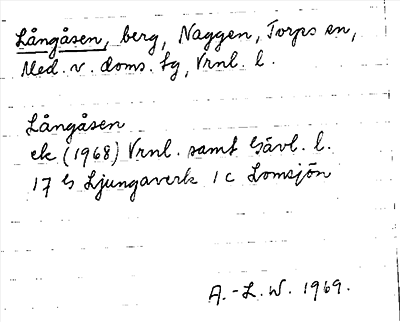 Långåsen, berg, Naggen, Torps sn,
Med. v. doms. sg, Vrnl. l.
Långåsen
ek (1968) Vrnl. samt Gävl. l.
17 G Ljungaverk 1 c Lomsjön
A.-L. W. 1969.